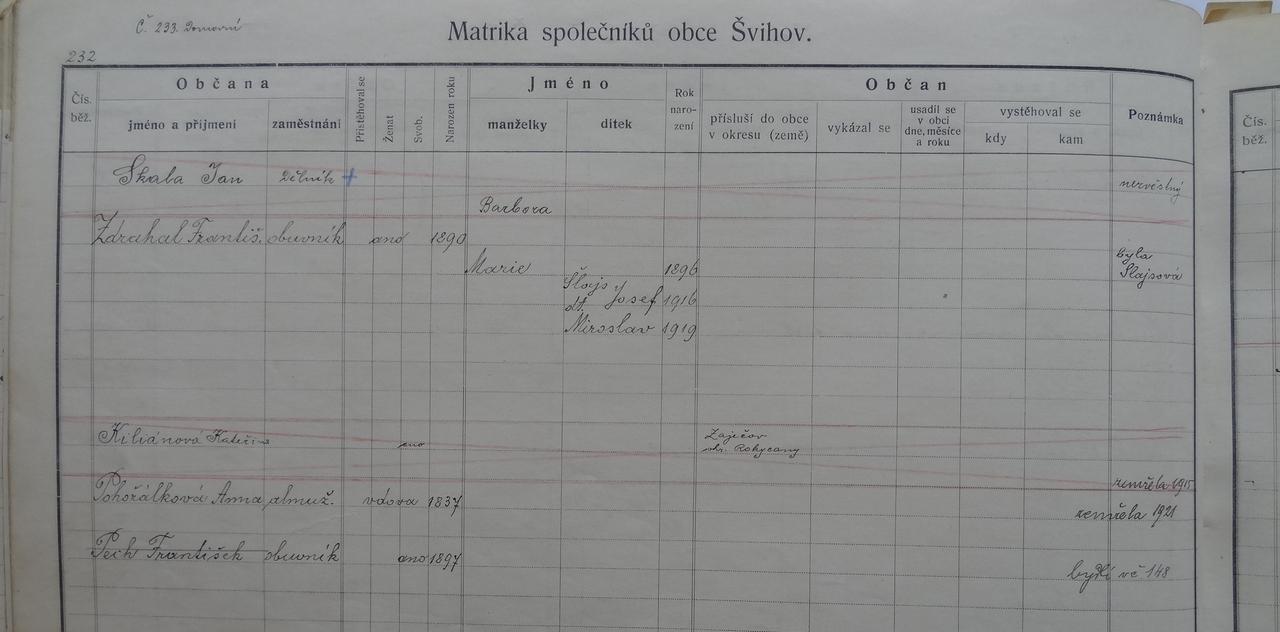 Č. 233. Domovní
Matrika společníků obce Švihov.
232
Čís. běž.
Občana
jméno a příjmení
zaměstnání
Přistěhoval se
Ženat
Svob.
Narozen roku
Jméno
manželky
dítek
Rok naro- zení
Občan
přísluší do obce v okresu (země)
vykázal se
usadil se v obci dne, měsíce a roku
vystěhoval se
kdy
kam
Poznámka
Čís. běž.
Skala Jan dělník + nezvěstný
Barbora
Zdrahal Františ. obuvník ano 1890 byla
Marie 1896 Šlajsová
Šlajs
dt. Josef 1916
Miroslav 1919
Kiliánová Kateřina ano Zaječov
okr. Rokycany
zemřela 1915
Pohořálková Anna almuž. vdova 1837 zemřela 1921
Pech František obuvník ano 1897
bydlí v č 148